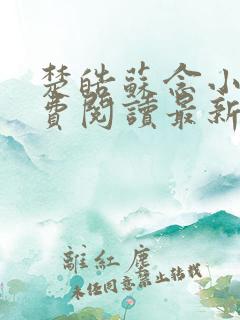 楚皓蘇念小
費閱讀最新
離紅塵
未經同意禁止轉載